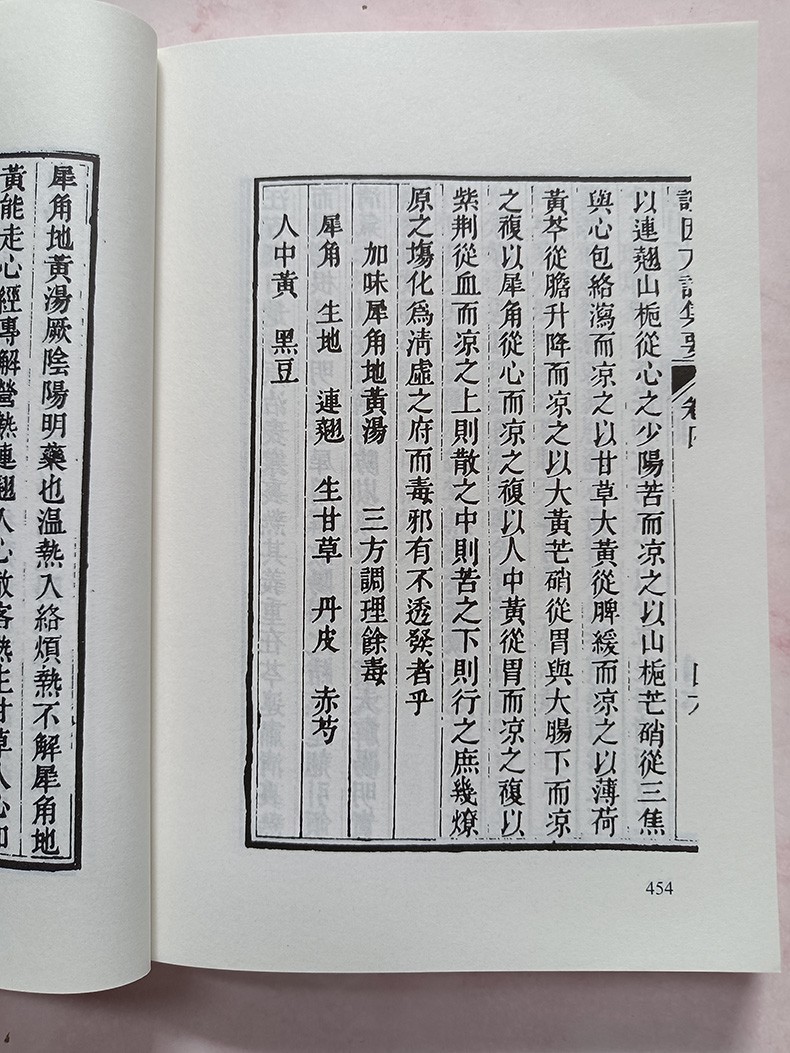 證因方論集要 卷四
以連翹山梔從心之少陽苦而凉之以山梔芒硝從三焦
與心包絡瀉而凉之以甘草大黃從脾緩而凉之以薄荷
黃芩從膽升降而凉之以大黃芒硝從胃與大腸下而凉
之複以犀角從心而凉之複以人中黃從胃而凉之複以
紫荆從血而凉之上則散之中則苦之下則行之庶幾燎
原之塲化爲淸虛之府而毒邪有不透發者乎
加味犀角地黃湯 三方調理餘毒
犀角 生地 連翹 生甘草 丹皮 赤芍
人中黃 黑豆
454
犀角地黃湯厥陰陽明藥也溫熱入絡煩熱不解犀角地
黃能走心經專解營熱連翹入心散客熱生甘草入心和